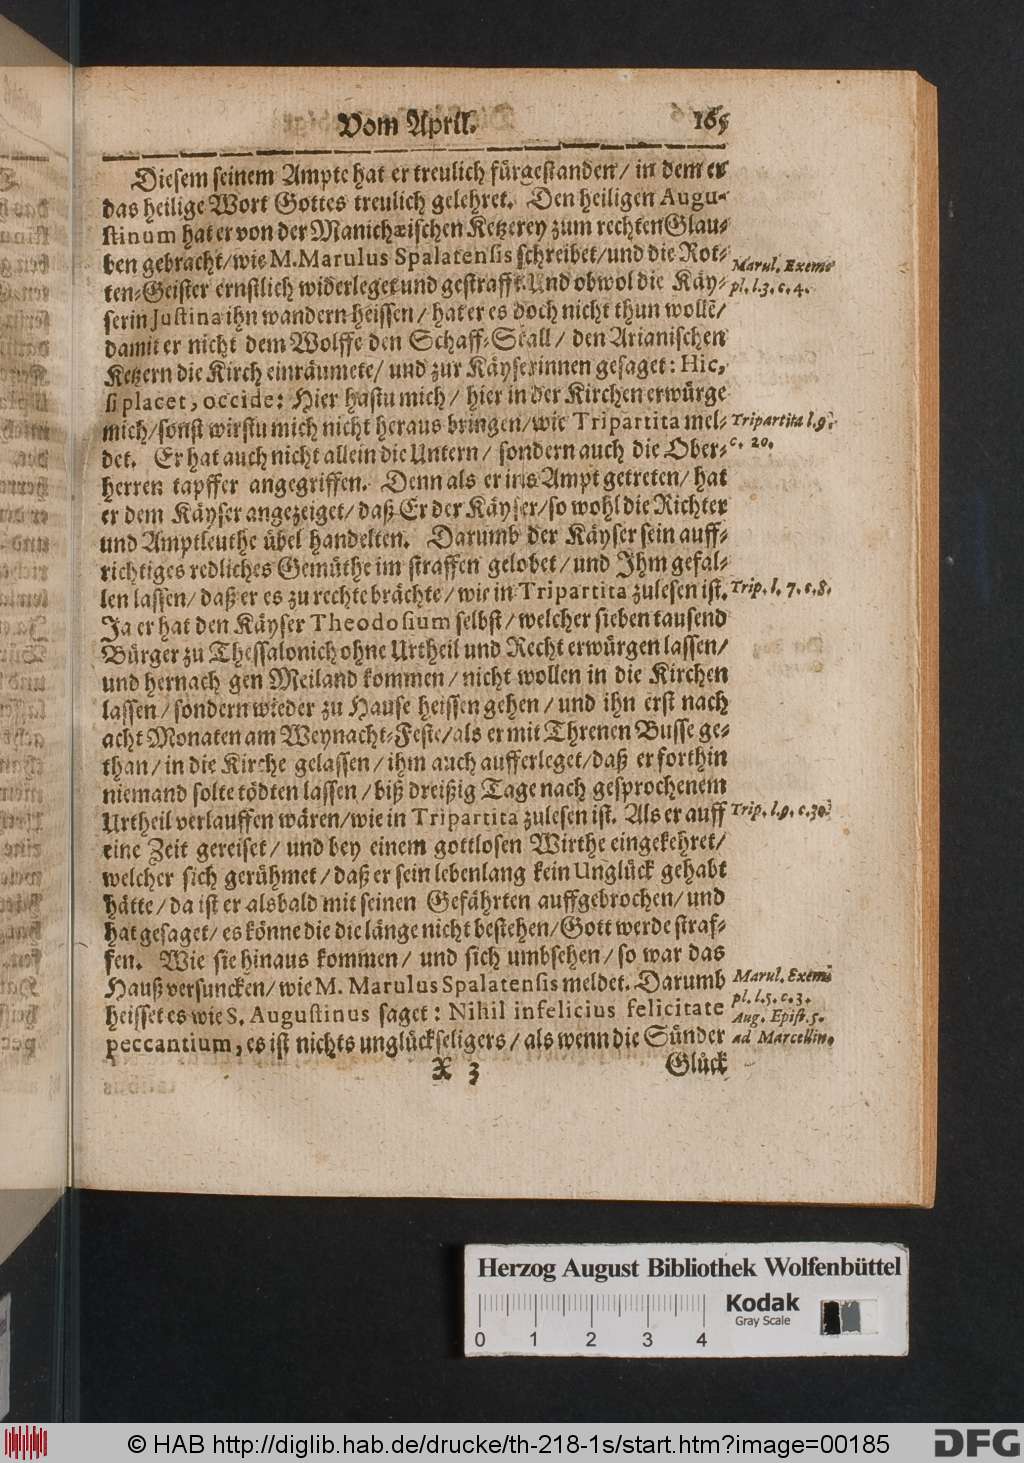 Vom April. 165
Diesem seinem Ampte hat er treulich fürgestanden / in dem er
das heilige Wort Gottes treulich gelehret. Den heiligen Augu-
stinum hat er von der Manichæischen Ketzerey zum rechten Glau-
ben gebracht / wie M. Marulus Spalatensis schreibet / und die Rot-
Marul. Exem-
ten-Geister ernstlich widerleget und gestrafft. Und obwol die Käy-
pl. l. 3. c. 4.
serin Justina ihn wandern heissen / hat er es doch nicht thun wollẽ /
damit er nicht dem Wolffe den Schaff-Stall / den Arianischen
Ketzern die Kirch einräumete / und zur Käyserinnen gesaget: Hic,
si placet, occide: Hier hastu mich / hier in der Kirchen erwürge
mich / sonst wirstu mich nicht heraus bringen / wie Tripartita mel-
Tripartita l. 9.
det. Er hat auch nicht allein die Untern / sondern auch die Ober-
c. 20.
herren tapffer angegriffen. Denn als er ins Ampt getreten / hat
er dem Käyser angezeiget / daß Er der Käyser / so wohl die Richter
und Amptleuthe übel handelten. Darumb der Käyser sein auff-
richtiges redliches Gemüthe im straffen gelobet / und Ihm gefal-
len lassen / daß er es zu rechte brächte / wie in Tripartita zulesen ist.
Trip. l. 7. c. 8.
Ja er hat den Käyser Theodosium selbst / welcher sieben tausend
Bürger zu Thessalonich ohne Urtheil und Recht erwürgen lassen /
und hernach gen Meiland kommen / nicht wollen in die Kirchen
lassen / sondern wieder zu Hause heissen gehen / und ihn erst nach
acht Monaten am Weynacht-Feste / als er mit Threnen Busse ge-
than / in die Kirche gelassen / ihm auch aufferleget / daß er forthin
niemand solte tödten lassen / biß dreißig Tage nach gesprochenem
Urtheil verlauffen wären / wie in Tripartita zulesen ist. Als er auff
Trip. l. 9. c. 30.
eine Zeit gereiset / und bey einem gottlosen Wirthe eingekehret /
welcher sich gerühmet / daß er sein lebenlang kein Unglück gehabt
hätte / da ist er alsbald mit seinen Gefährten auffgebrochen / und
hat gesaget / es könne die die länge nicht bestehen / Gott werde straf-
fen. Wie sie hinaus kommen / und sich umbsehen / so war das
Hauß versuncken / wie M. Marulus Spalatensis meldet. Darumb
Marul. Exem-
pl. l. 5. c. 3.
heisset es wie S. Augustinus saget: Nihil infelicius felicitate
Aug. Epist. 5.
peccantium, es ist nichts unglückseligers / als wenn die Sünder
ad Marcellin.
X 3 Glück
Herzog August Bibliothek Wolfenbüttel
Kodak
Gray Scale
0 1 2 3 4
© HAB http://diglib.hab.de/drucke/th-218-1s/start.htm?image=00185
DFG